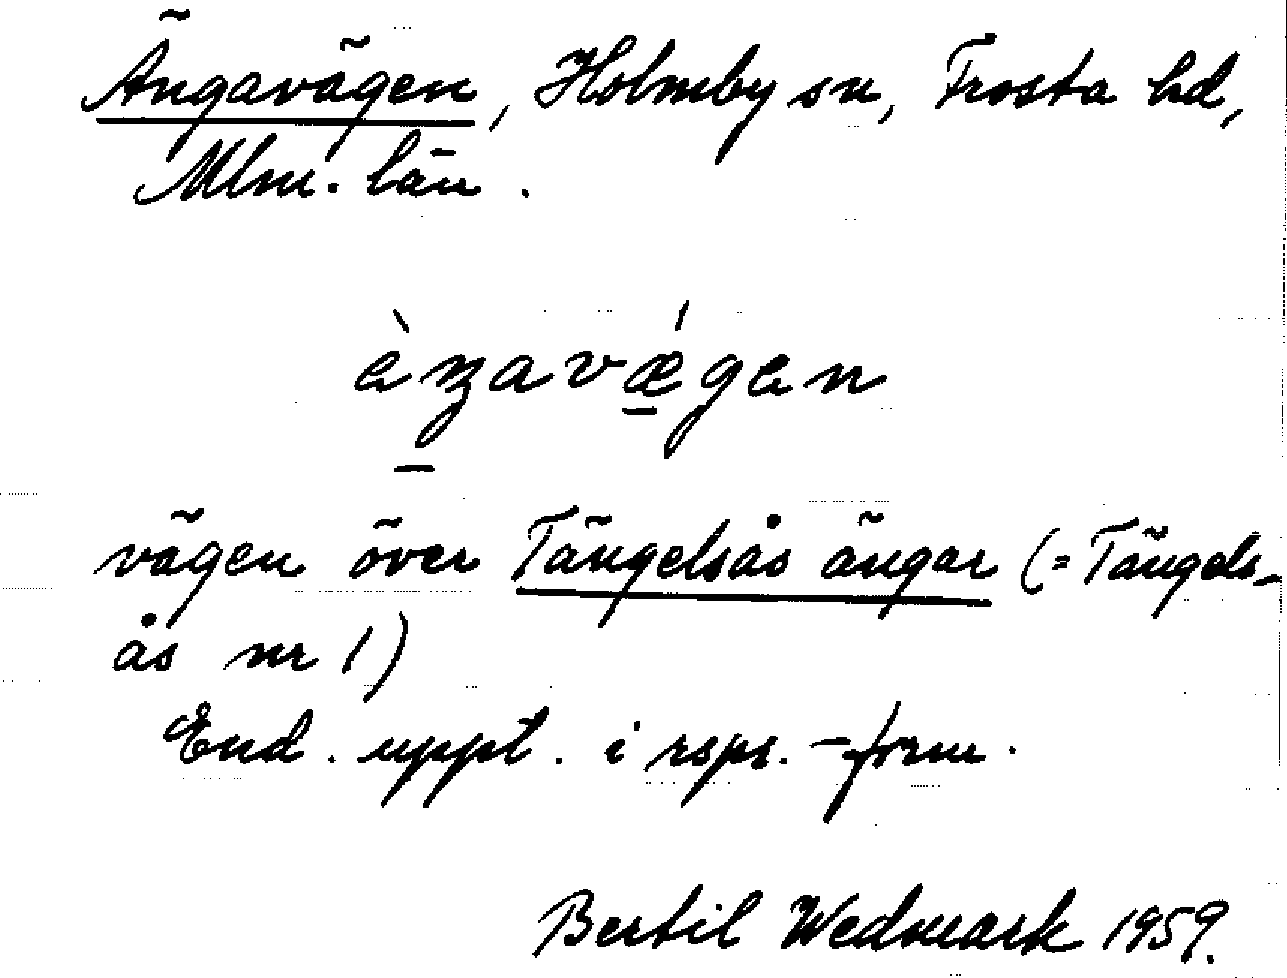 Ängavägen, Holmby sn, Frosta hd,
Mlm. län.
èŋavǽgen
vägen över Tängelsås ängar (= Tängels-
ås nr 1)
End. uppt. i rspr.-form.
Bertil Wedmark 1959.